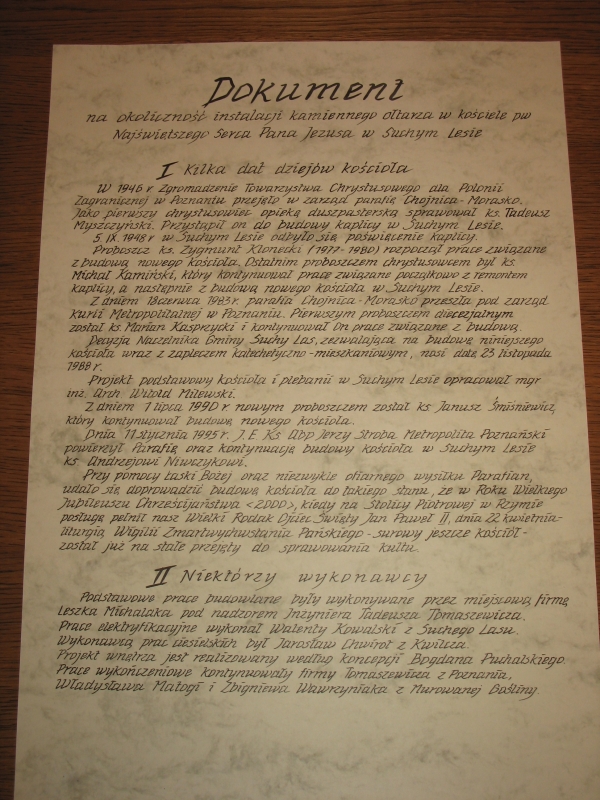 Dokument
na okoliczność instalacji kamiennego ołtarza w kościele pw
Najświętszego Serca Pana Jezusa w Suchym Lesie
I Kilka dat dziejów kościoła
W 1946 r Zgromadzenie Towarzystwa Chrystusowego dla Polonii
Zagranicznej w Poznaniu przejęło w zarząd parafię Chojnica-Morasko.
Jako pierwszy chrystusowiec opiekę duszpasterską sprawował ks. Tadeusz
Myszczyński. Przystąpił on do budowy kaplicy w Suchym Lesie.
5 IX 1948 r w Suchym Lesie odbyło się poświęcenie kaplicy.
Proboszcz ks. Zygmunt Klonecki (1977-1980) rozpoczął prace związane
z budową nowego kościoła. Ostatnim proboszczem chrystusowcem był ks.
Michał Kamiński, który kontynuował prace związane początkowo z remontem
kaplicy, a następnie z budową nowego kościoła w Suchym Lesie.
Z dniem 18 czerwca 1983 r. parafia Chojnica-Morasko przeszła pod zarząd
Kurii Metropolitalnej w Poznaniu. Pierwszym proboszczem diecezjalnym
został ks. Marian Kasprzycki i kontynuował On prace związane z budową.
Decyzja Naczelnika Gminy Suchy Las, zezwalająca na budowę niniejszego
kościoła wraz z zapleczem katechetyczno-mieszkaniowym, nosi datę 23 listopada
1988 r.
Projekt podstawowy kościoła i plebanii w Suchym Lesie opracował mgr
inż. Arch. Witold Milewski.
Z dniem 1 lipca 1990 r. nowym proboszczem został ks Janusz Śmiśniewicz,
który kontynuował budowę nowego kościoła.
Dnia 11 stycznia 1995 r. J.E. Ks Abp Jerzy Stroba Metropolita Poznański
powierzył Parafię oraz kontynuację budowy kościoła w Suchym Lesie
ks. Andrzejowi Niwczykowi.
Przy pomocy Łaski Bożej oraz niezwykle ofiarnego wysiłku Parafian,
udało się doprowadzić budowę kościoła do takiego stanu, że w Roku Wielkiego
Jubileuszu Chrześcijaństwa <2000>, kiedy na Stolicy Piotrowej w Rzymie
posługę pełnił nasz Wielki Rodak Ojciec Święty Jan Paweł II, dnia 22 kwietnia-
liturgią Wigilii Zmartwychwstania Pańskiego - surowy jeszcze kościół -
został już na stałe przejęty do sprawowania kultu.
II Niektórzy wykonawcy
Podstawowe prace budowlane były wykonywane przez miejscową firmę
Leszka Michalaka pod nadzorem Inżyniera Tadeusza Tomaszewicza.
Prace elektryfikacyjne wykonał Walenty Kowalski z Suchego Lasu.
Wykonawcą prac ciesielskich był Jarosław Chwirot z Kwilcza.
Projekt wnętrza jest realizowany według koncepcji Bogdana Puchalskiego.
Prace wykończeniowe kontynuowały firmy Tomaszewicza z Poznania,
Władysława Małogi i Zbigniewa Wawrzyniaka z Murowanej Gośliny.